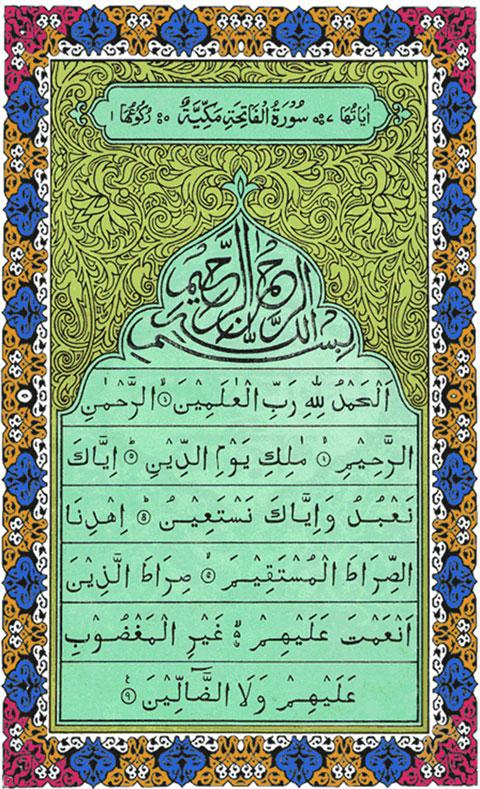 اٰيَاتُهَا ٧ سُوْرَةُ الْفَاتِحَةِ مَكِّيَّةٌ ٥ رُكُوْعُهَا ١
بِسْمِ اللّٰهِ الرَّحْمٰنِ الرَّحِيْمِ
اَلْحَمْدُ لِلّٰهِ رَبِّ الْعٰلَمِيْنَ ۙ﴿١﴾ الرَّحْمٰنِ
الرَّحِيْمِ ۙ﴿٢﴾ مٰلِكِ يَوْمِ الدِّيْنِ ؕ﴿٣﴾ اِيَّاكَ
نَعْبُدُ وَاِيَّاكَ نَسْتَعِيْنُ ؕ﴿٤﴾ اِهْدِنَا
الصِّرَاطَ الْمُسْتَقِيْمَ ۙ﴿٥﴾ صِرَاطَ الَّذِيْنَ
اَنْعَمْتَ عَلَيْهِمْ ۙ غَيْرِ الْمَغْضُوْبِ
عَلَيْهِمْ وَلَا الضَّآلِّيْنَ